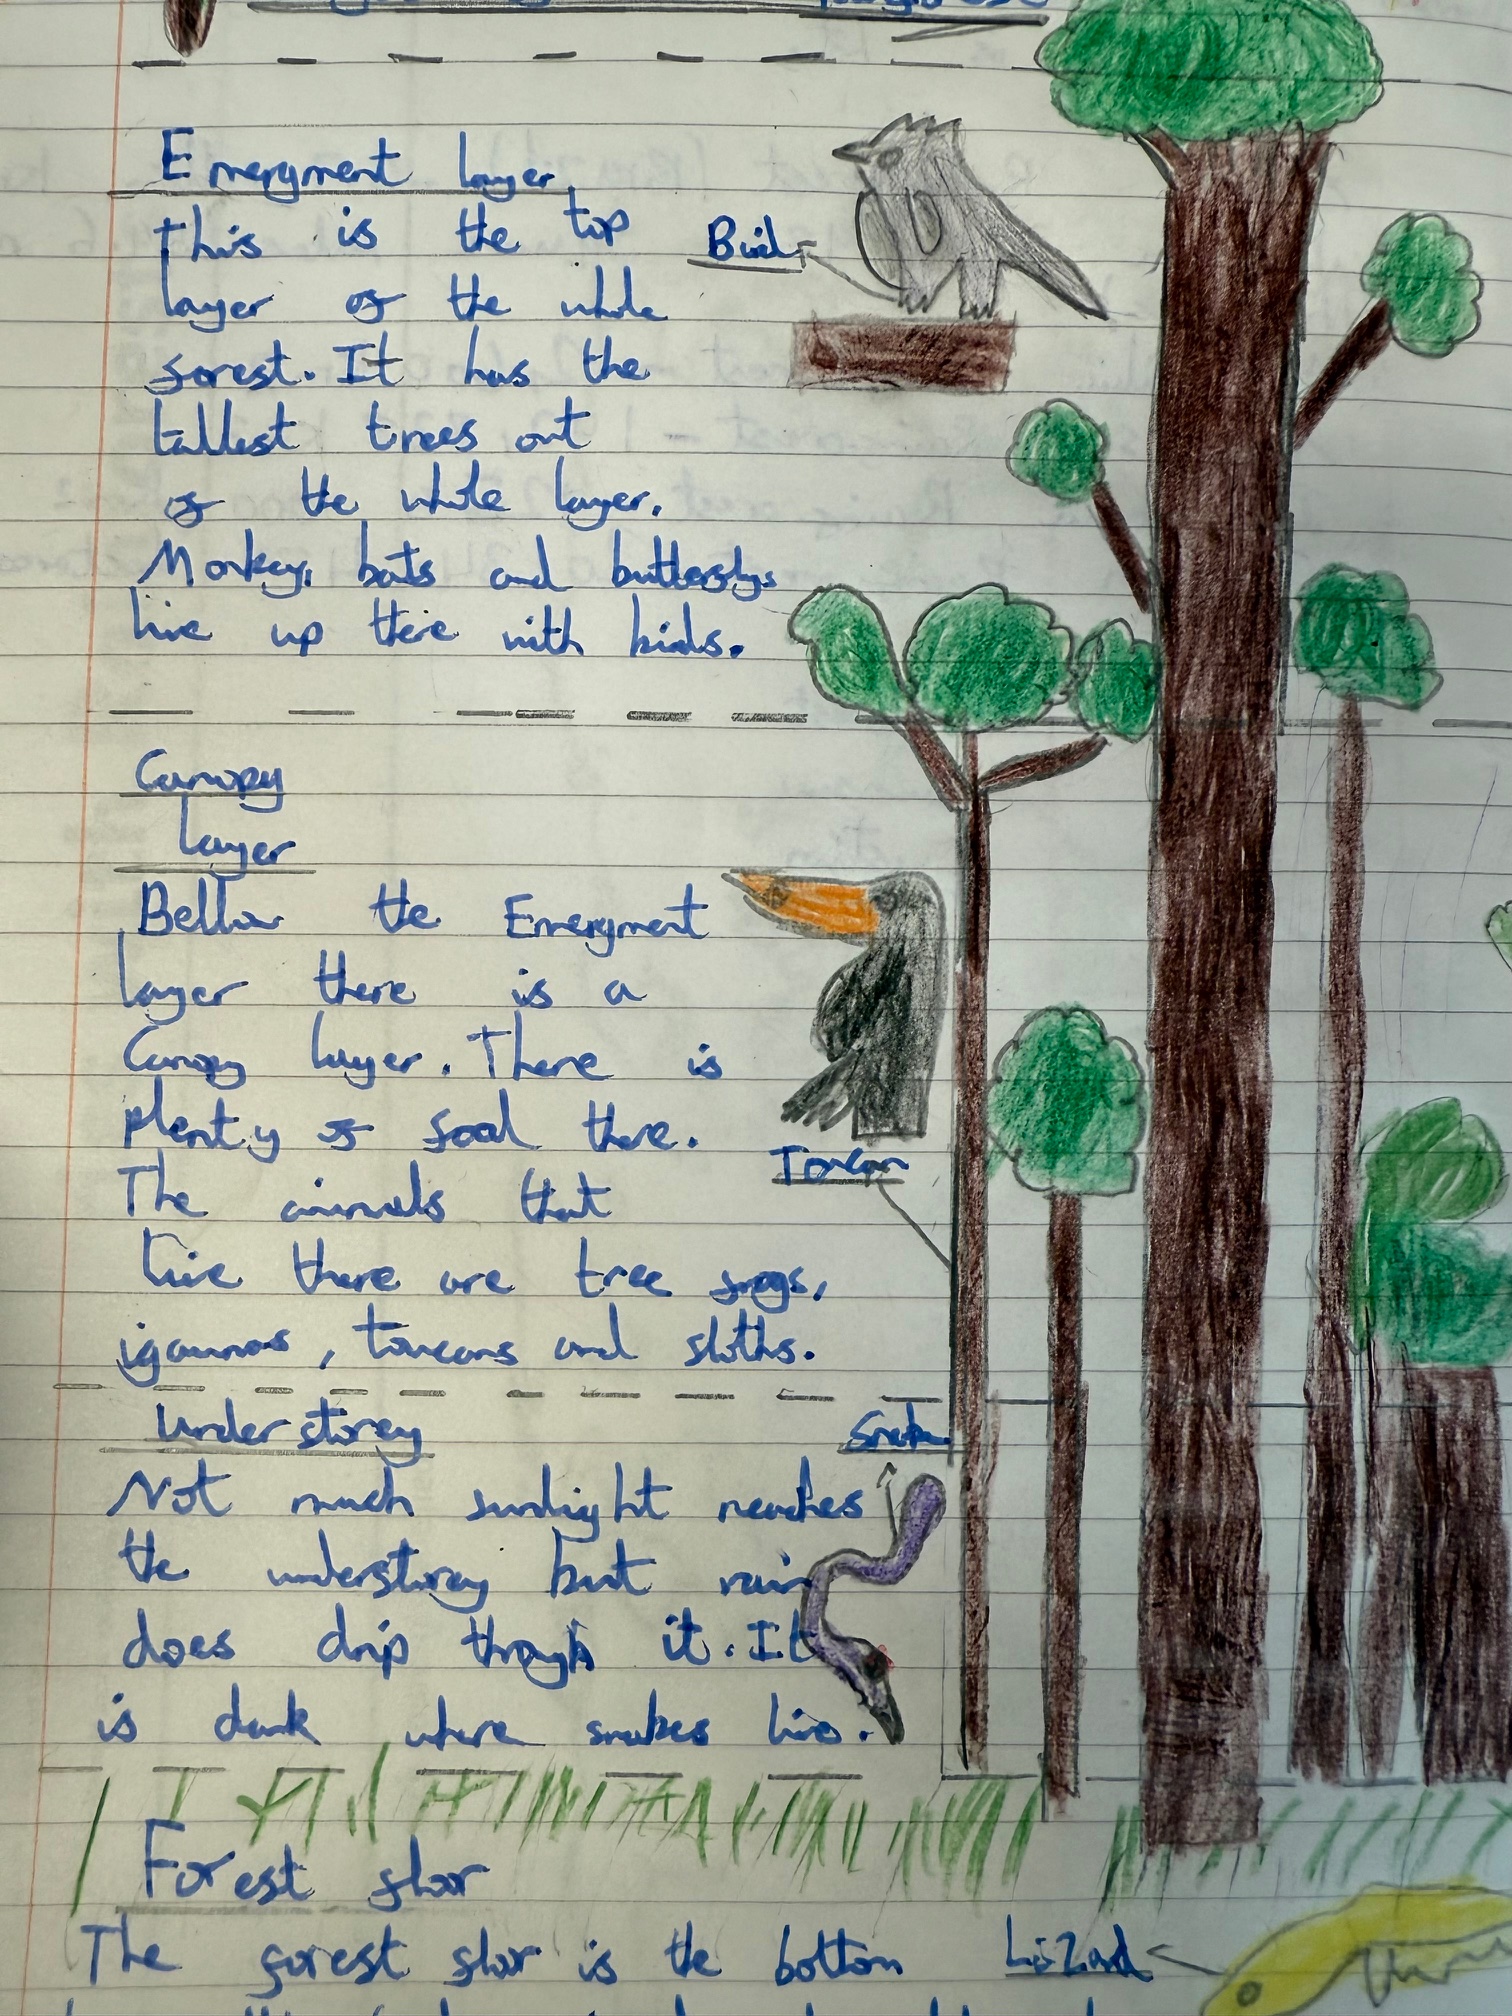 Emergment layer
This is the top
Bird
layer of the whole
forest. It has the
tallest trees out
of the whole layer.
Monkey, bats and butterflys
live up there with birds.
Canopy
Layer
Bellow the Emergment
layer there is a
Canopy layer. There is
plenty of food there.
Toucan
The aimals that
live there are tree frogs,
igaunas, toucans and sloths.
Understorey
Snake
Not much sunlight reaches
the understorey but rain
does drip through it. It
is dark where snakes live.
Forest floor
The forest floor is the bottom
Lizard